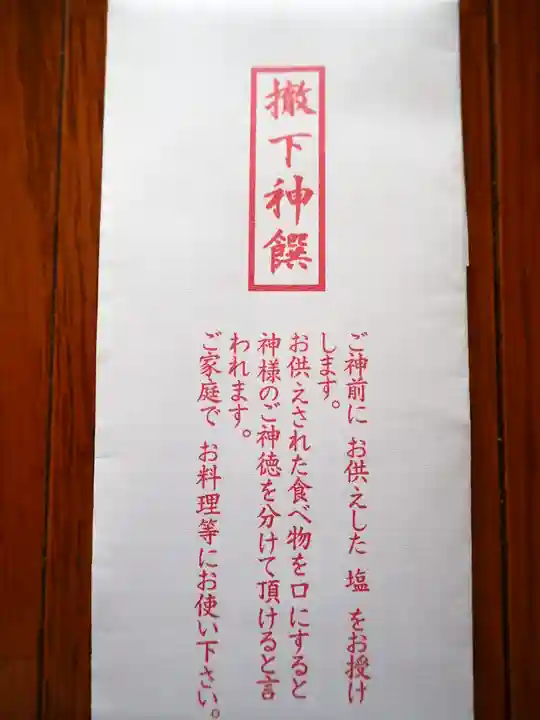 撤下神饌
ご神前に お供えした 塩 をお授け
します。
お供えされた食べ物を口にすると
神様のご神徳を分けて頂けると言
われます。
ご家庭で お料理等にお使い下さい。